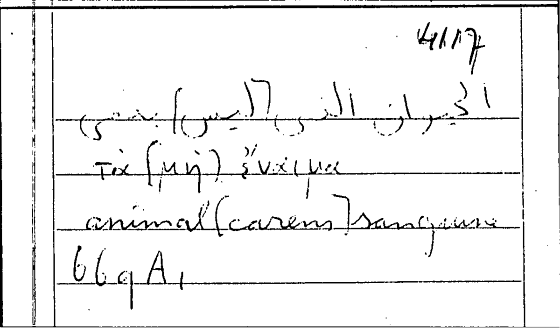 4117
الحيوان الذى [ليس] بدمى
τὰ (μὴ) ἔναιμα
animal [carens] sanguine
66q A,